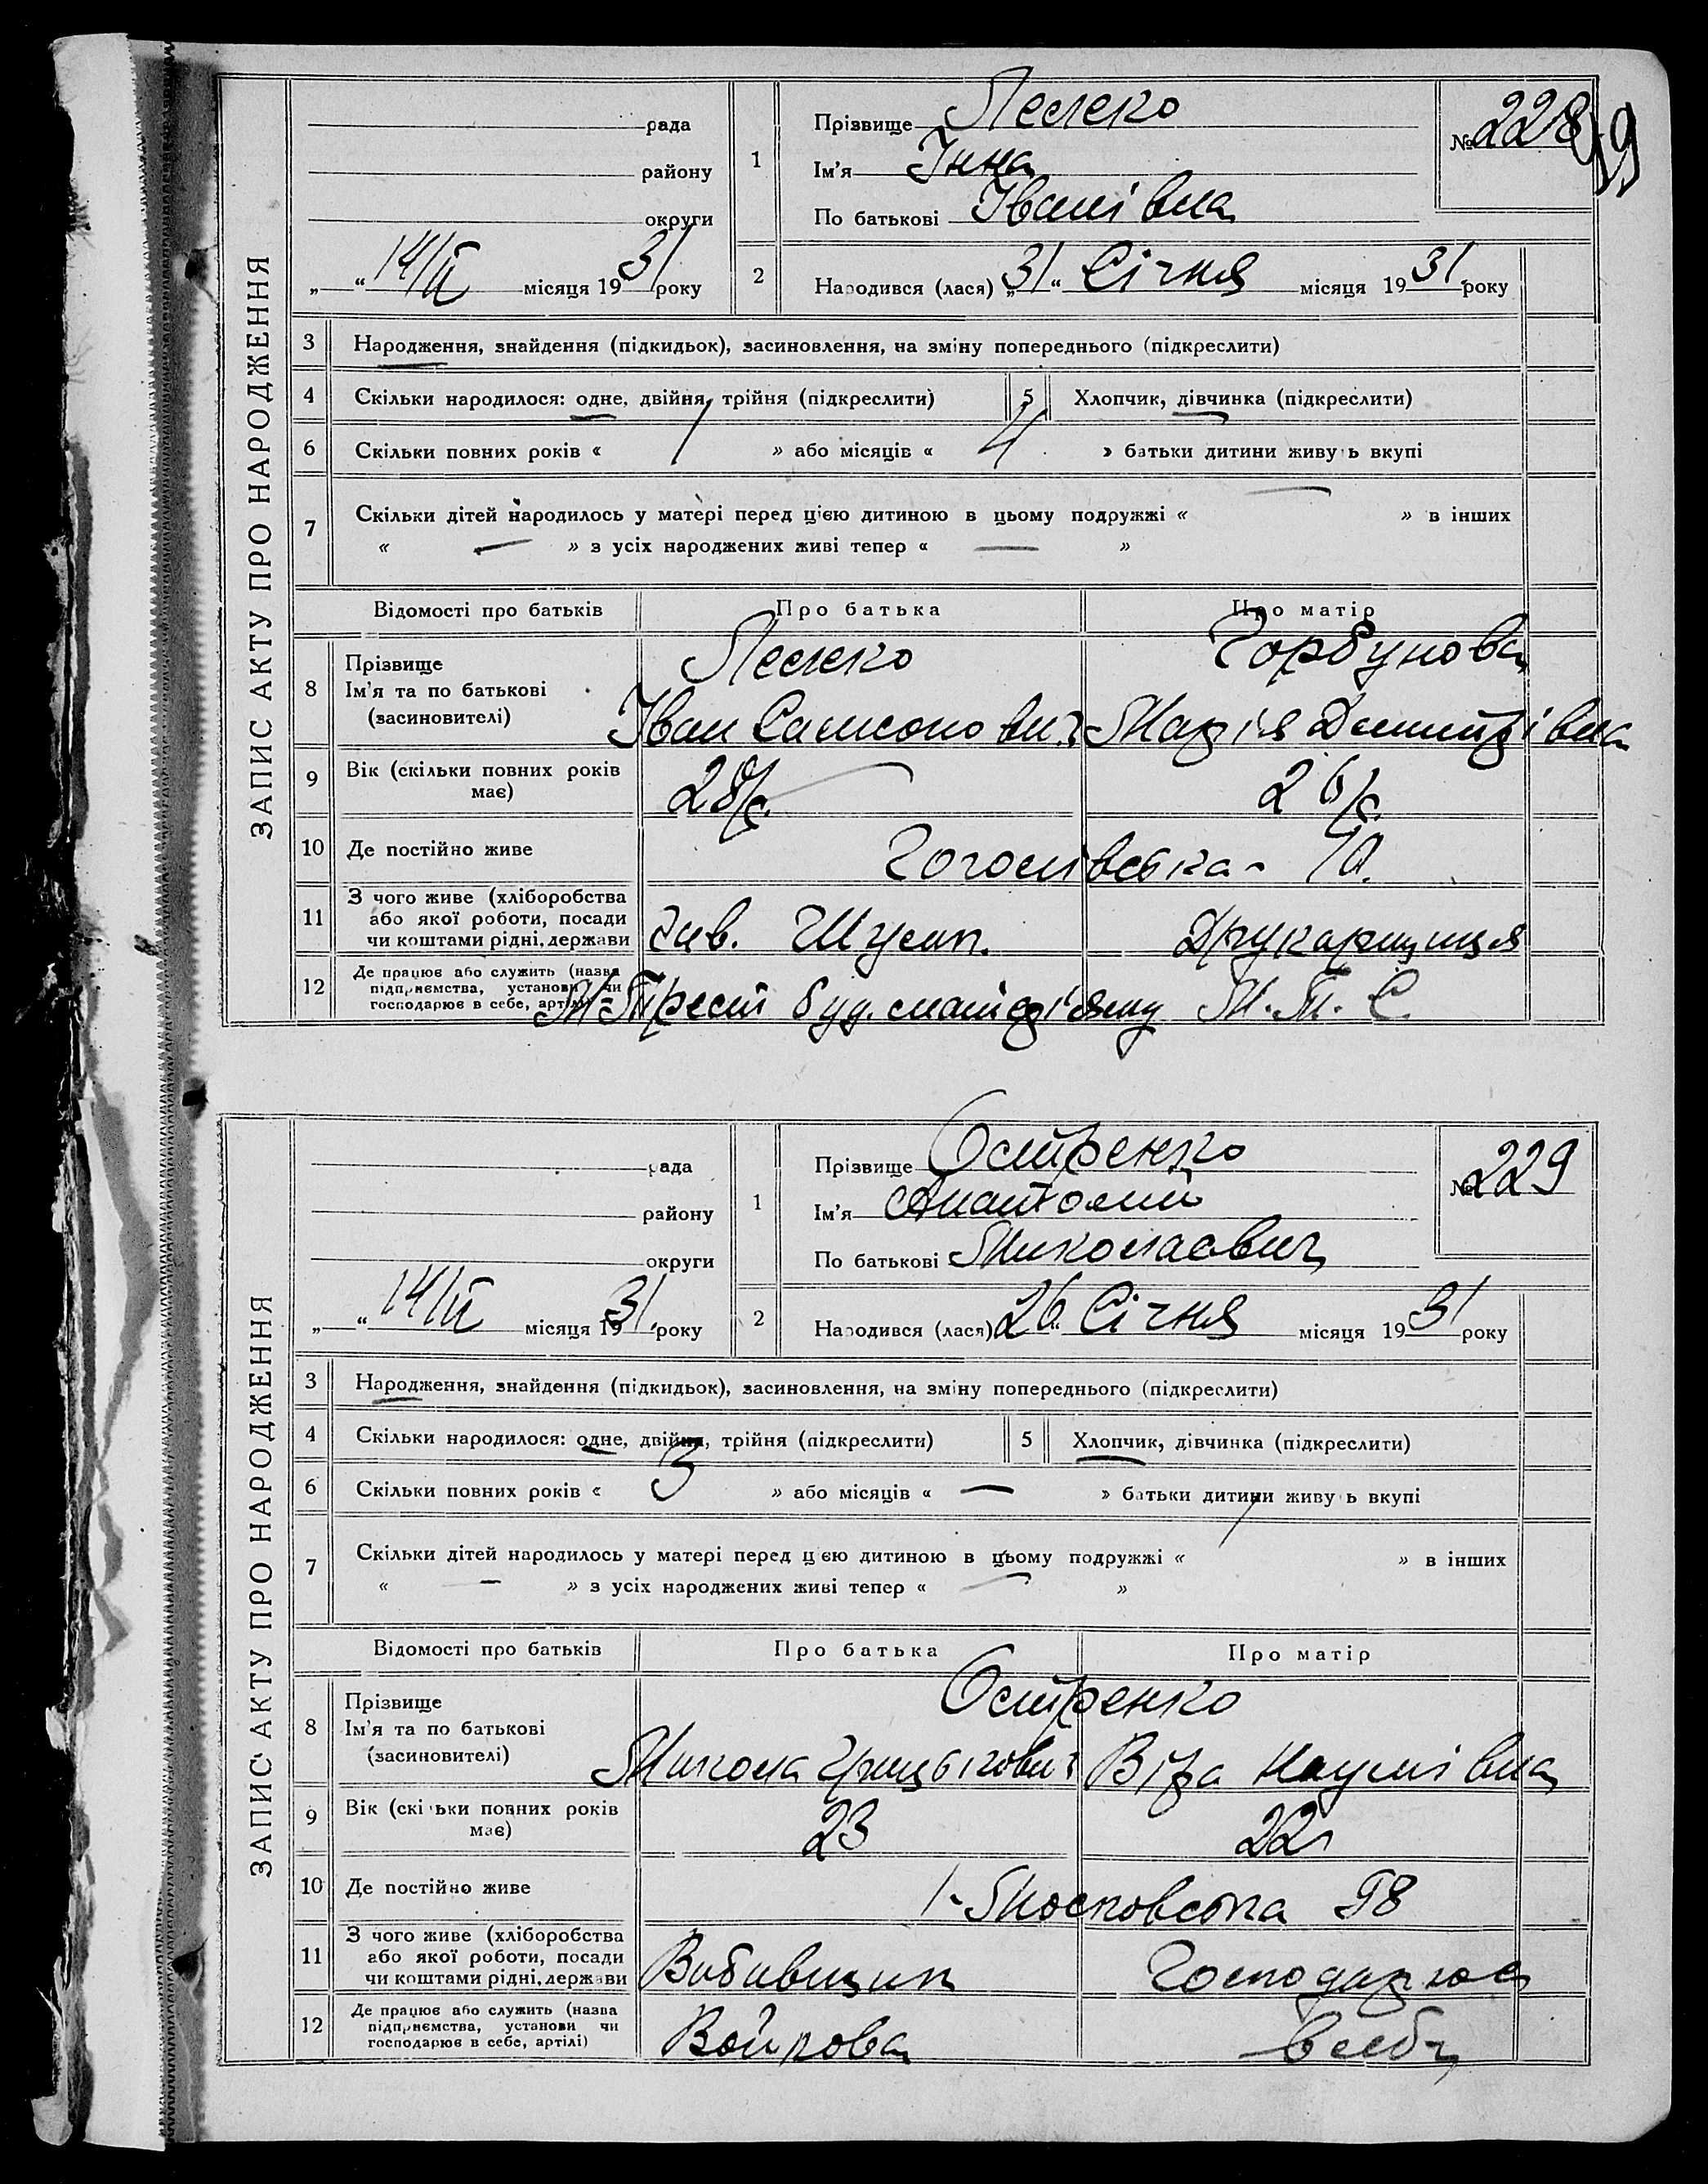 ЗАПИС АКТУ ПРО НАРОДЖЕННЯ
рада
району
округи
„ “ 14/II місяця 1931 року
1
Прізвище Лелеко
Ім'я Інна
По батькові Іванівна
№ 228
99
2 Народився (лася) „31“ Січня місяця 1931 року
3 Народження, знайдення (підкидьок), засиновлення, на зміну попереднього (підкреслити)
4 Скільки народилося: одне, двійня, трійня (підкреслити) 5 Хлопчик, дівчинка (підкреслити)
6 Скільки повних років « 1 » або місяців « 4 » батьки дитини живуть вкупі
7 Скільки дітей народилось у матері перед цією дитиною в цьому подружжі « — » в інших
« — » з усіх народжених живі тепер « — »
Відомості про батьків Про батька Про матір
8 Прізвище Лелеко Горбунова
Ім'я та по батькові
(засиновителі) Іван Самсонович Марія Дмитрівна
9 Вік (скільки повних років має) 28 р. 26 р.
10 Де постійно живе Гоголівська - 10.
11 З чого живе (хліборобства
або якої роботи, посади
чи коштами рідні, держави Друкарщиця
12 Де працює або служить (назва
підприємства, установи чи
господарює в себе, артілі) Трест буд. матеріялу М.Т.С.
ЗАПИС АКТУ ПРО НАРОДЖЕННЯ
рада
району
округи
„ “ 14/II місяця 1931. року
1
Прізвище Остренко
Ім'я Анатолій
По батькові Миколаєвич
№ 229
2 Народився (лася) „26“ Січня місяця 1931 року
3 Народження, знайдення (підкидьок), засиновлення, на зміну попереднього (підкреслити)
4 Скільки народилося: одне, двійня, трійня (підкреслити) 5 Хлопчик, дівчинка (підкреслити)
6 Скільки повних років « 3 » або місяців « — » батьки дитини живуть вкупі
7 Скільки дітей народилось у матері перед цією дитиною в цьому подружжі « 1 » в інших
« — » з усіх народжених живі тепер « — »
Відомості про батьків Про батька Про матір
8 Прізвище Остренко
Ім'я та по батькові
(засиновителі) Микола Грицькович Віра Наумівна
9 Вік (скільки повних років має) 23 22
10 Де постійно живе 1-Московська 58
11 З чого живе (хліборобства
або якої роботи, посади
чи коштами рідні, держави Вибивщик Господарює
12 Де працює або служить (назва
підприємства, установи чи
господарює в себе, артілі) Войкова в себе